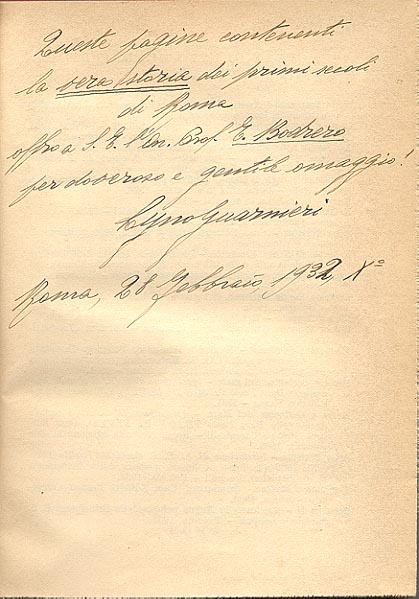 Queste pagine contenenti
la vera storia dei primi secoli
di Roma
offro a S. E. l'On. Prof. E. Bodrero
per doveroso e gentile omaggio!
Guarnieri
Roma, 28 Febbraio, 1932, Xº